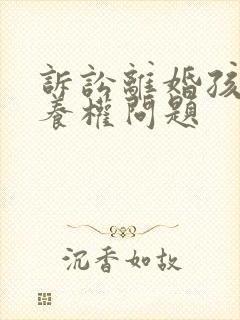 訴訟離婚孩
養權問題
沉香如故